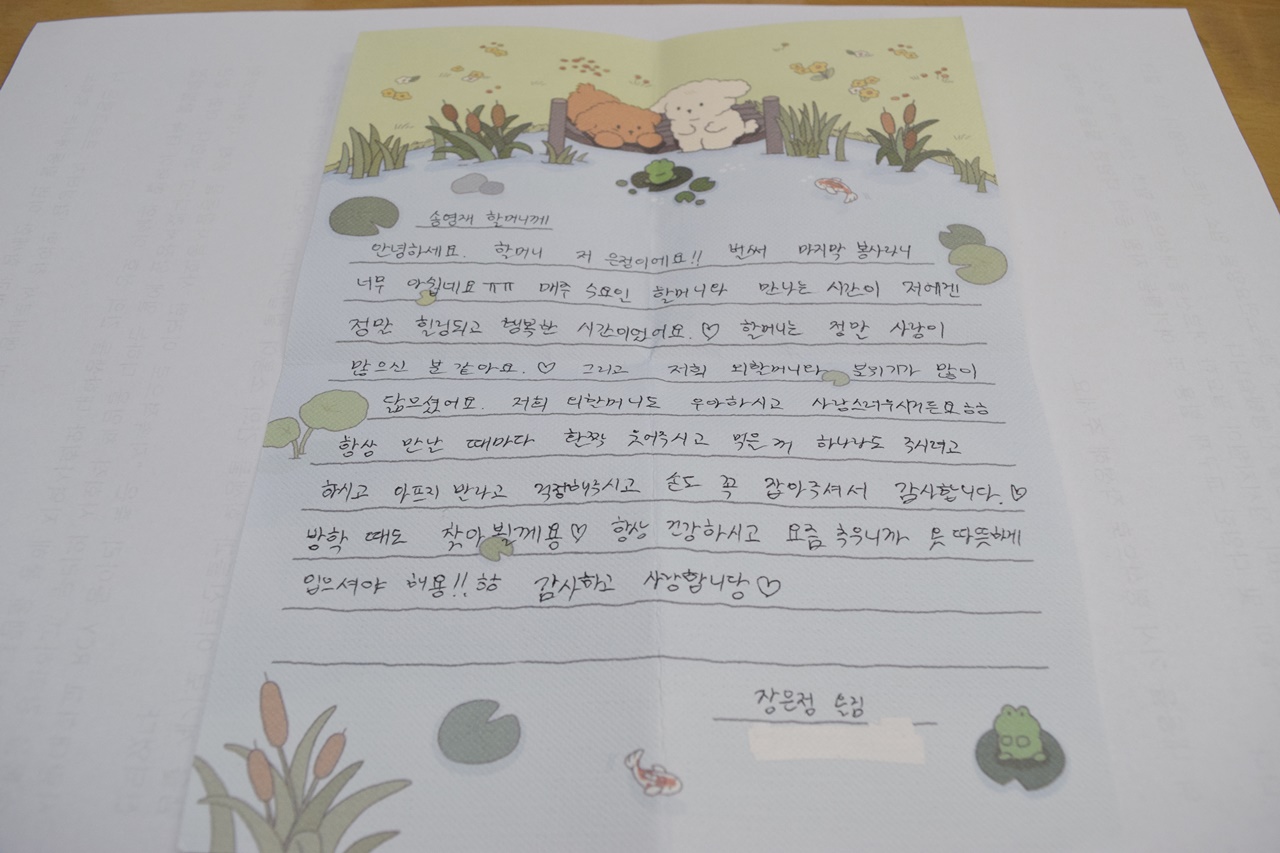 송영재 할머니께
안녕하세요. 할머니 저 은정이에요!! 벌써 마지막 봉사라니
너무 아쉽네요ㅠㅠ 매주 수요일 할머니랑 만나는 시간이 저에겐
정말 힐링되고 행복한 시간이었어요.♡ 할머니는 정말 사랑이
많으신 분 같아요.♡ 그리고 저희 외할머니랑 분위기가 많이
닮으셨어요. 저희 외할머니도 우아하시고 사랑스러우시거든요ㅎㅎ
항상 만날 때마다 활짝 웃어주시고 먹을 꺼 하나라도 주시려고
하시고 아프지 말라고 걱정해주시고 손도 꼭 잡아주셔서 감사합니다.♡
방학 때도 찾아뵐게용♡ 항상 건강하시고 요즘 추우니까 옷 따뜻하게
입으셔야 해용!!ㅎㅎ 감사하고 사랑합니당♡
장은정 올림